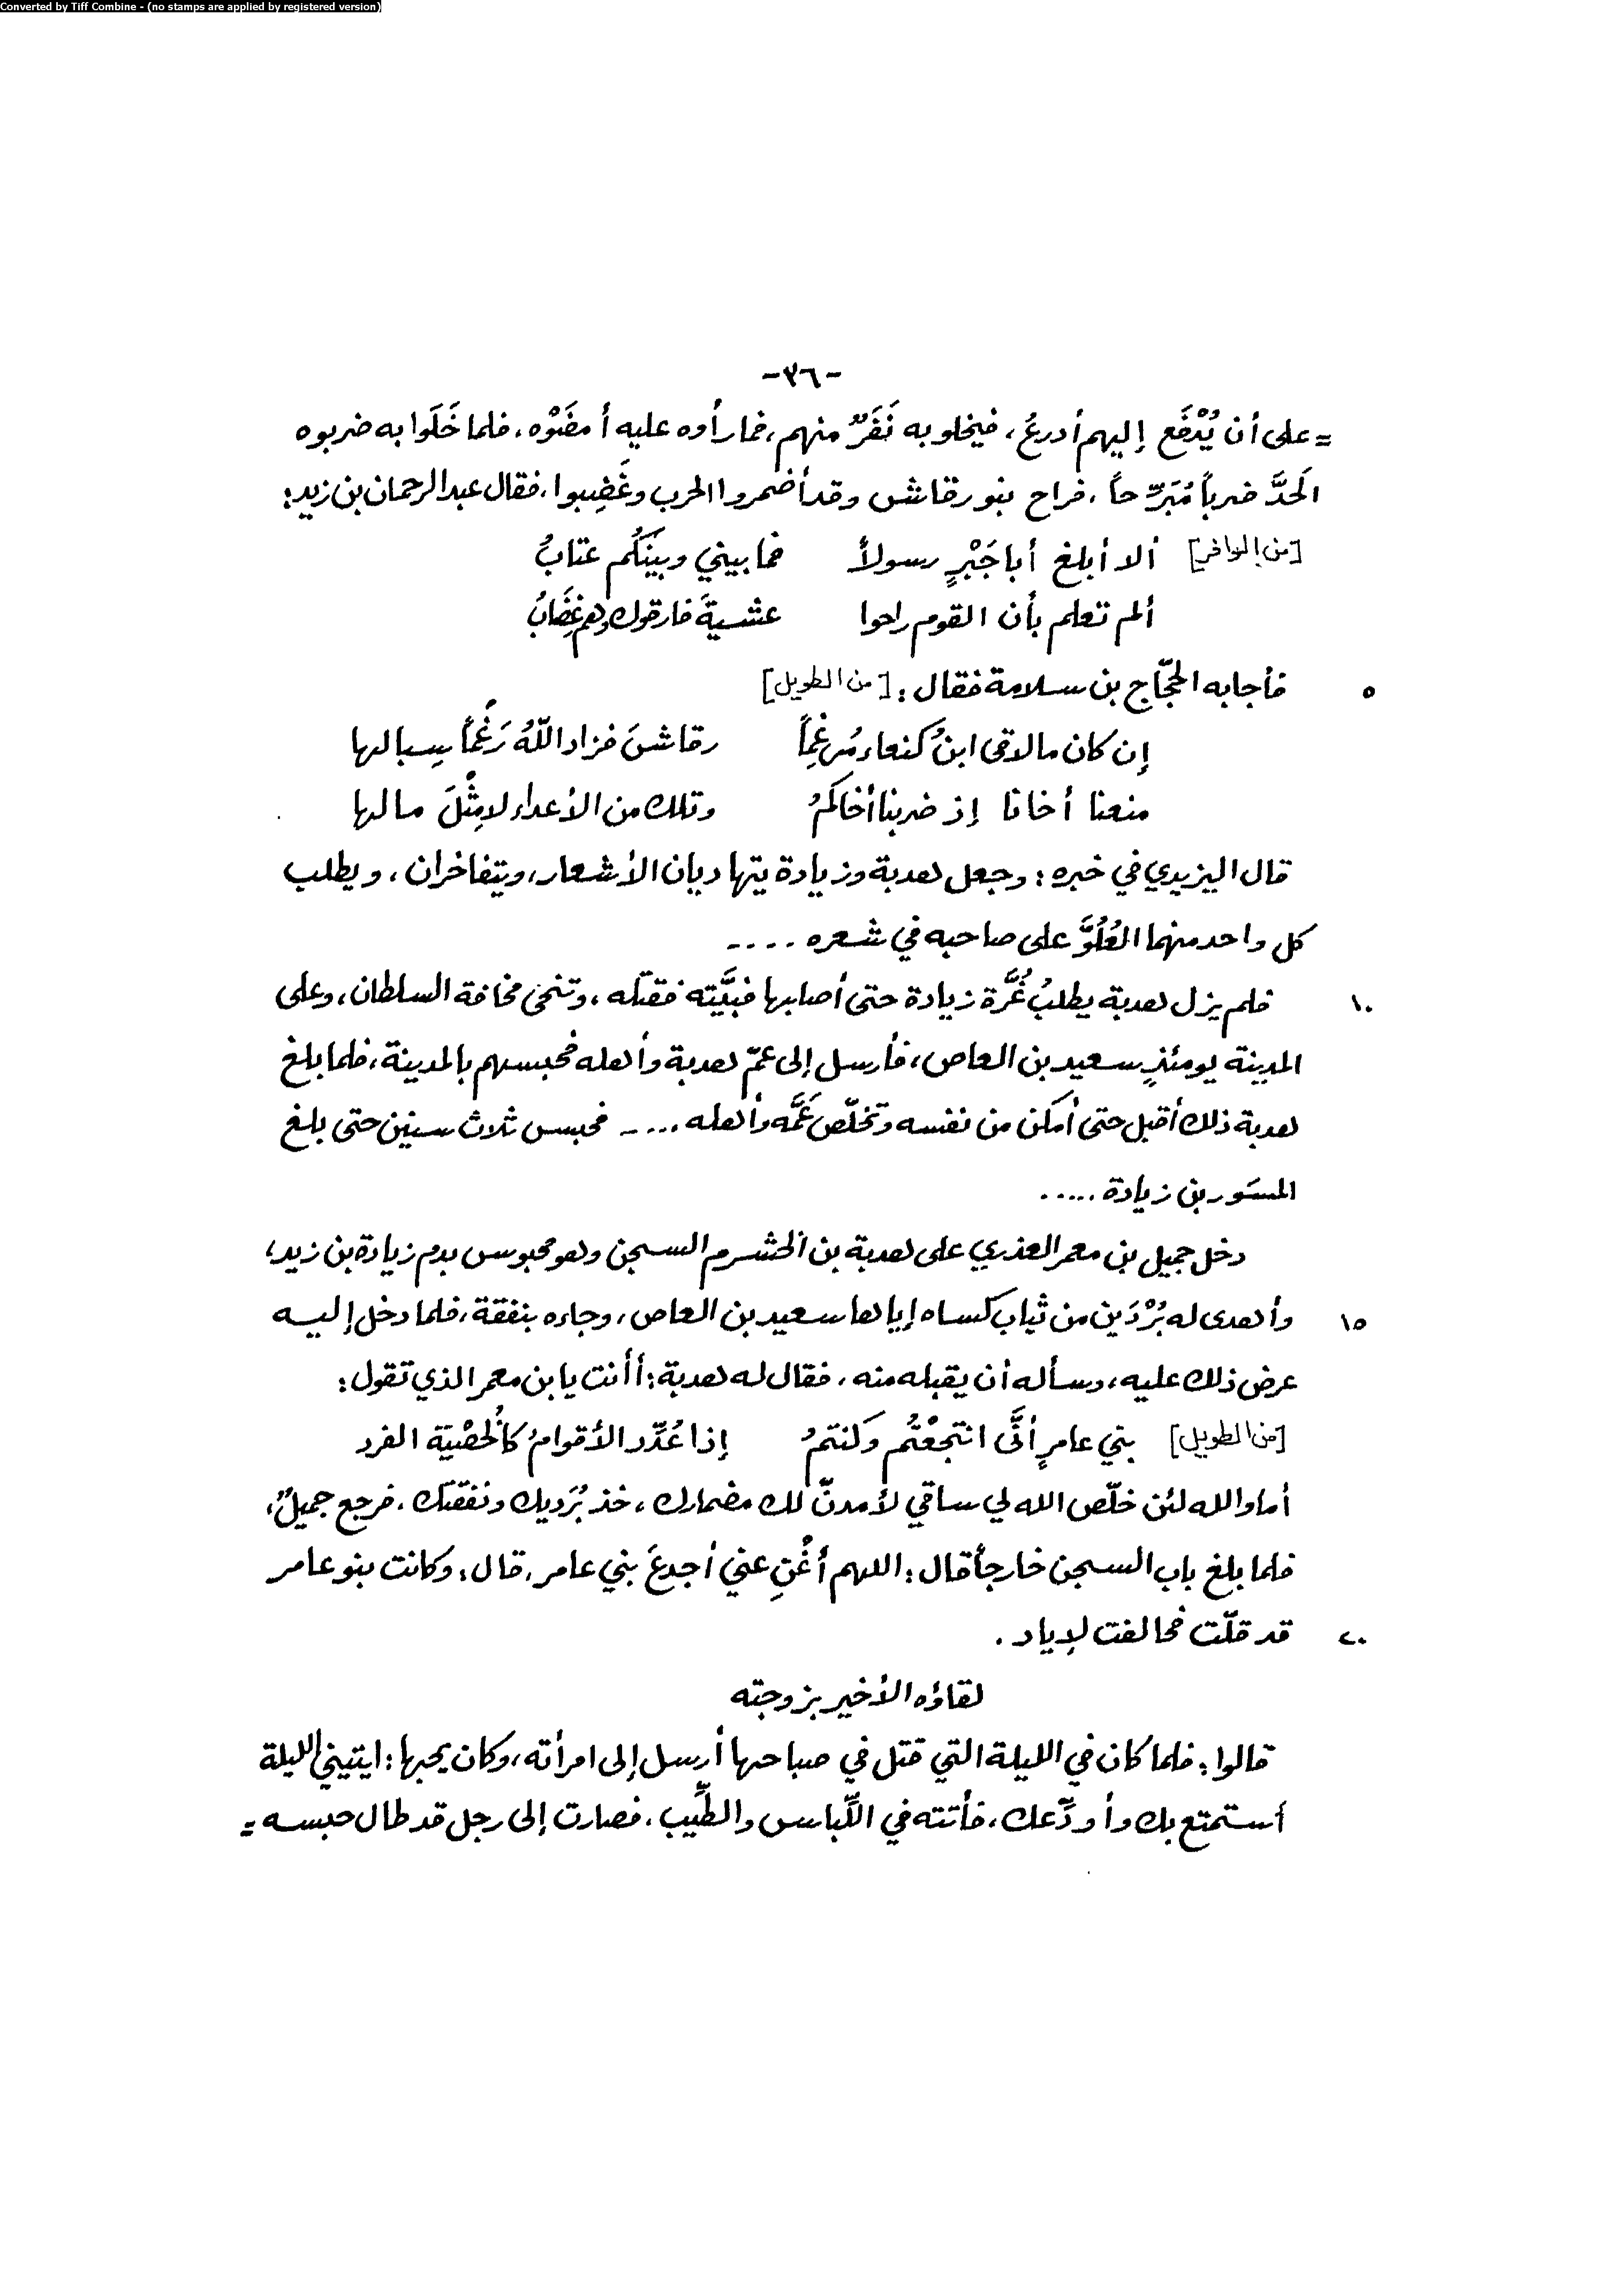 Converted by Tiff Combine - (no stamps are applied by registered version)
-٣٦-
= على أن يُدْفَع إليهم أدرعُ، فيخلو به نَفَرٌ منهم، فما رأوه عليه أمضَوْه، فلما خَلَوا به ضربوه
الَحدَّ ضرباً مُبَرِّحاً، فراح بنو رقاش وقد أضمروا الحرب وغَضِبوا، فقال عبد الرحمان بن زيد:
[من الوافر] ألا أبلغ أبا جَبْرٍ رسولاً فما بيني وبينَكُم عتابُ
ألم تعلم بأن القوم راحوا عشيةَ فارقوك وهم غِضَابُ
٥ فأجابه الحجّاج بن سلامة فقال: [من الطويل]
إن كان ما لاقى ابنُ كنعاء مُرغِماً رقاشَ فزاد اللّهُ رَغْماً سِبالها
منعنا أخانا إذ ضربنا أخاكمُ وتلك من الأعداء لا مِثْلَ مالها
قال اليزيدي في خبره: وجعل هدبة وزيادة يتهاديان الأشعار، ويتفاخران، ويطلب
كل واحد منهما العُلُوَّ على صاحبه في شعره ....
١٠ فلم يزل هدبة يطلبُ غُرَّة زيادة حتى أصابها فبيَّته فقتله، وتنحى مخافة السلطان، وعلى
المدينة يومئذٍ سعيد بن العاص، فأرسل إلى عمّ هدبة وأهله فحبسهم بالمدينة، فلما بلغ
هدبة ذلك أقبل حتى أمكن من نفسه وتخلّص عَمَّه وأهله ..... فحبس ثلاث سنين حتى بلغ
المسَور بن زيادة .....
دخل جميل بن معمر العذري على هدبة بن الخشرم السجن وهو محبوس بدم زيادة بن زيد،
١٥ وأهدى له بُرْدَين من ثياب كساه إياها سعيد بن العاص، وجاءه بنفقة، فلما دخل إليه
عرض ذلك عليه، وسأله أن يقبله منه، فقال له هدبة: أأنت يا بن معمر الذي تقول:
[من الطويل] بني عامرٍ أنَّى انتجعْتُم وكنتمُ إذا عُدِّد الأقوامُ كالُخصْيَة الفرد
أما والله لئن خلّص الله لي ساقي لأمدنّ لك مضمارك، خذ بُرديك ونفقتك، فرجع جميلٌ،
فلما بلغ باب السجن خارجاً قال: اللهم أغْنِ عني أجدعَ بني عامر، قال: وكانت بنو عامر
٢٠ قد قلّت فحالفت لإياد.
لقاؤه الأخير بزوجته
قالوا: فلما كان في الليلة التي قتل في صباحها أرسل إلى امرأته، وكان يحبها: ايتيني الليلة
أستمتع بك وأودِّعك، فأتته في اللِّباس والطِّيب، فصارت إلى رجل قد طال حبسه =